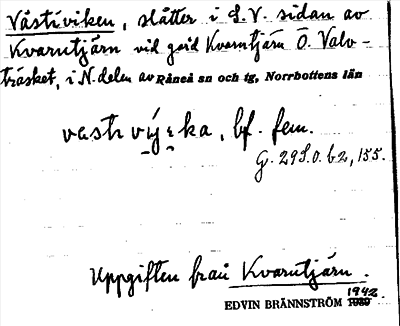 Västiviken, slåtter i S.V. sidan av
Kvarntjärn vid gård Kvarntjärn Ö. Valv-
träsket, i N. delen av Råneå sn och tg, Norrbottens län
västivýka, bf. fem.
G. 29S.0. b2, 155.
Uppgiften från Kvarntjärn.
1942
EDVIN BRÄNNSTRÖM 1939